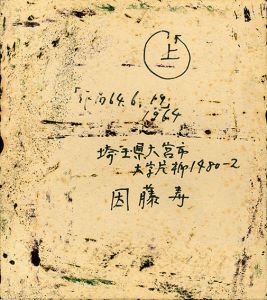 上
64.6.19
1964
埼玉県大宮市
大字片柳1480-2
因藤寿